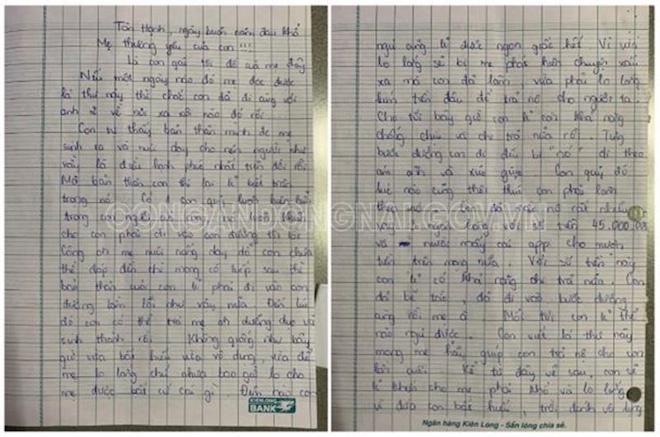 Tân Hạnh, ngày buồn năm đau khổ
Mẹ thương yêu của con !!!
Là con gái tồi tệ của mẹ đây
Nếu một ngày nào đó mẹ đọc được
lá thư này thì chắc con đã đi cùng với
anh về nơi xa rồi
Con tự thấy bản thân mình được mẹ
sinh ra và nuôi dạy cho nên người như
vậy là điều hạnh phúc nhất trên đời rồi
Mà bản thân con thì lại
trong nó. Có con quỷ luôn
trong con người con càng
cho con phải đi vào con đường tội lỗi
Công ơn mẹ nuôi nấng dạy dỗ con chưa
thể đáp đền thì mong có kiếp sau
bản thân của con phải đi vào con
đường lầm lỗi như vậy nữa. Đến lúc
đó con có thể trả mẹ ơn dưỡng dục và
sinh thành rồi. Không giống như bây
giờ vừa bất hiếu vừa vô dụng, vừa để
mẹ lo lắng chứ chưa bao giờ lo cho
mẹ được bất cứ cái gì. Đến bây giờ
KIENLONG
BANK
ngủ cũng được ngon giấc hết. Vì vừa
lo lắng sợ bị mẹ phát hiện chuyện xấu
xa mà con đã làm, vừa phải lo lắng
kiếm tiền đâu để trả nợ cho người ta.
Cho tới bây giờ con khả năng
chống chịu và chi trả nữa rồi. Từng
bước đường con đi đều bị "nó" đi theo
ám ảnh và xúc giục. Con quỷ đó
lúc nào cũng thôi thúc con phải làm
theo nó. Con đã mắc nợ rất nhiều
với số tiền 45.000.000
và mấy cái app cho mượn
tiền trên mạng nữa. Với số tiền này
con có khả năng chi trả nữa. Con
đã bế tắc, đã đi vào bước đường
cùng rồi mẹ ạ. Mỗi tối con thể
nào ngủ được. Con viết lá thư này
mong mẹ hãy giúp con trả nợ cho con
lần cuối. Kể từ đây về sau, con sẽ
khiến cho mẹ phải khổ và lo lắng
vì đứa con bất hiếu,
Ngân hàng Kiên Long - Sẵn lòng chia sẻ.
CONGANDONGNAI.GOV.VN
CONGANDONGNAI.GOV.VN